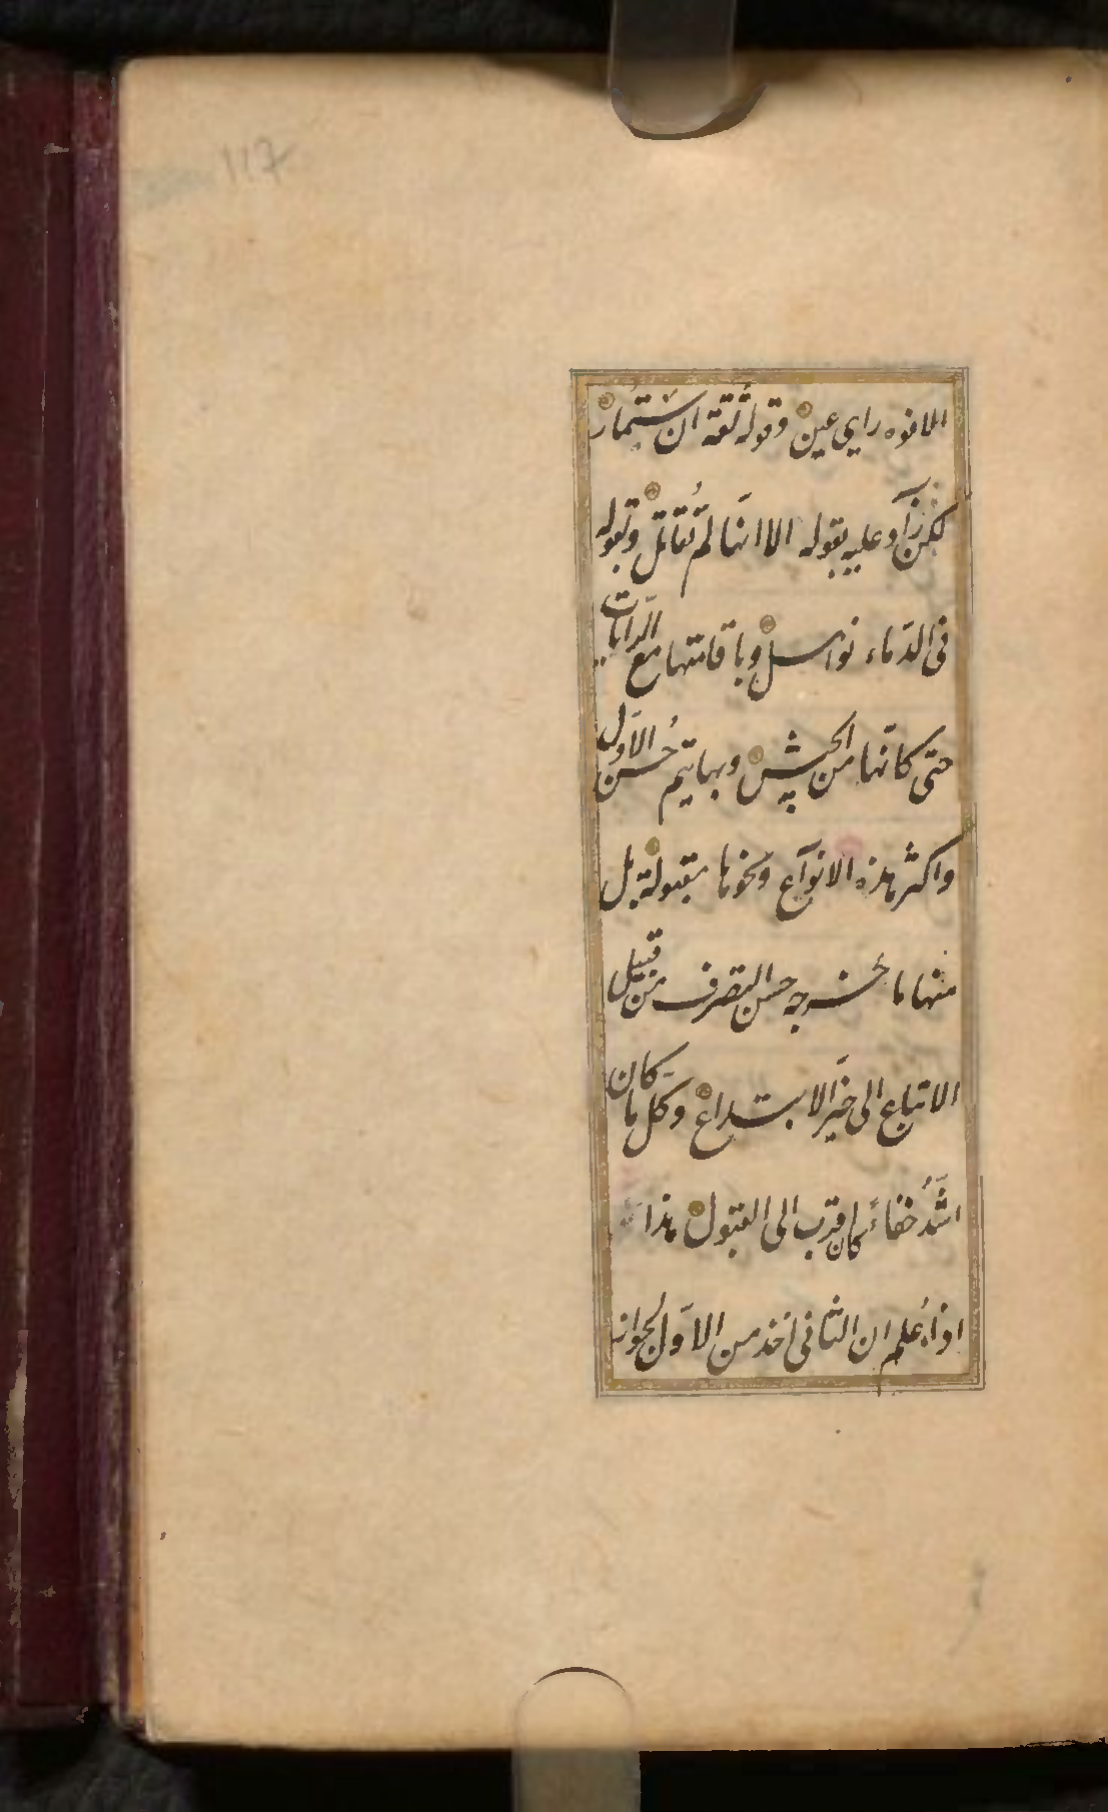 117
الافوه راي عين وقوله ثقة ان ستمار
لكن زاد عليه بقوله الا انها لم تقاتل وبقوله
في الدماء نواسل وباقامتها مع الرايات
حتى كانها من الجيش وبها يتم حسن الاول
واكثر هذه الانواع ونحوها مقبولة بل
منها ما يخرجه حسن التصرف من قبيل
الاتباع الى خير الابتداع وكل ما كان
اشد خفاء كان اقرب الى القبول هذا
اذا علم ان الثاني اخذ من الاول لجواز